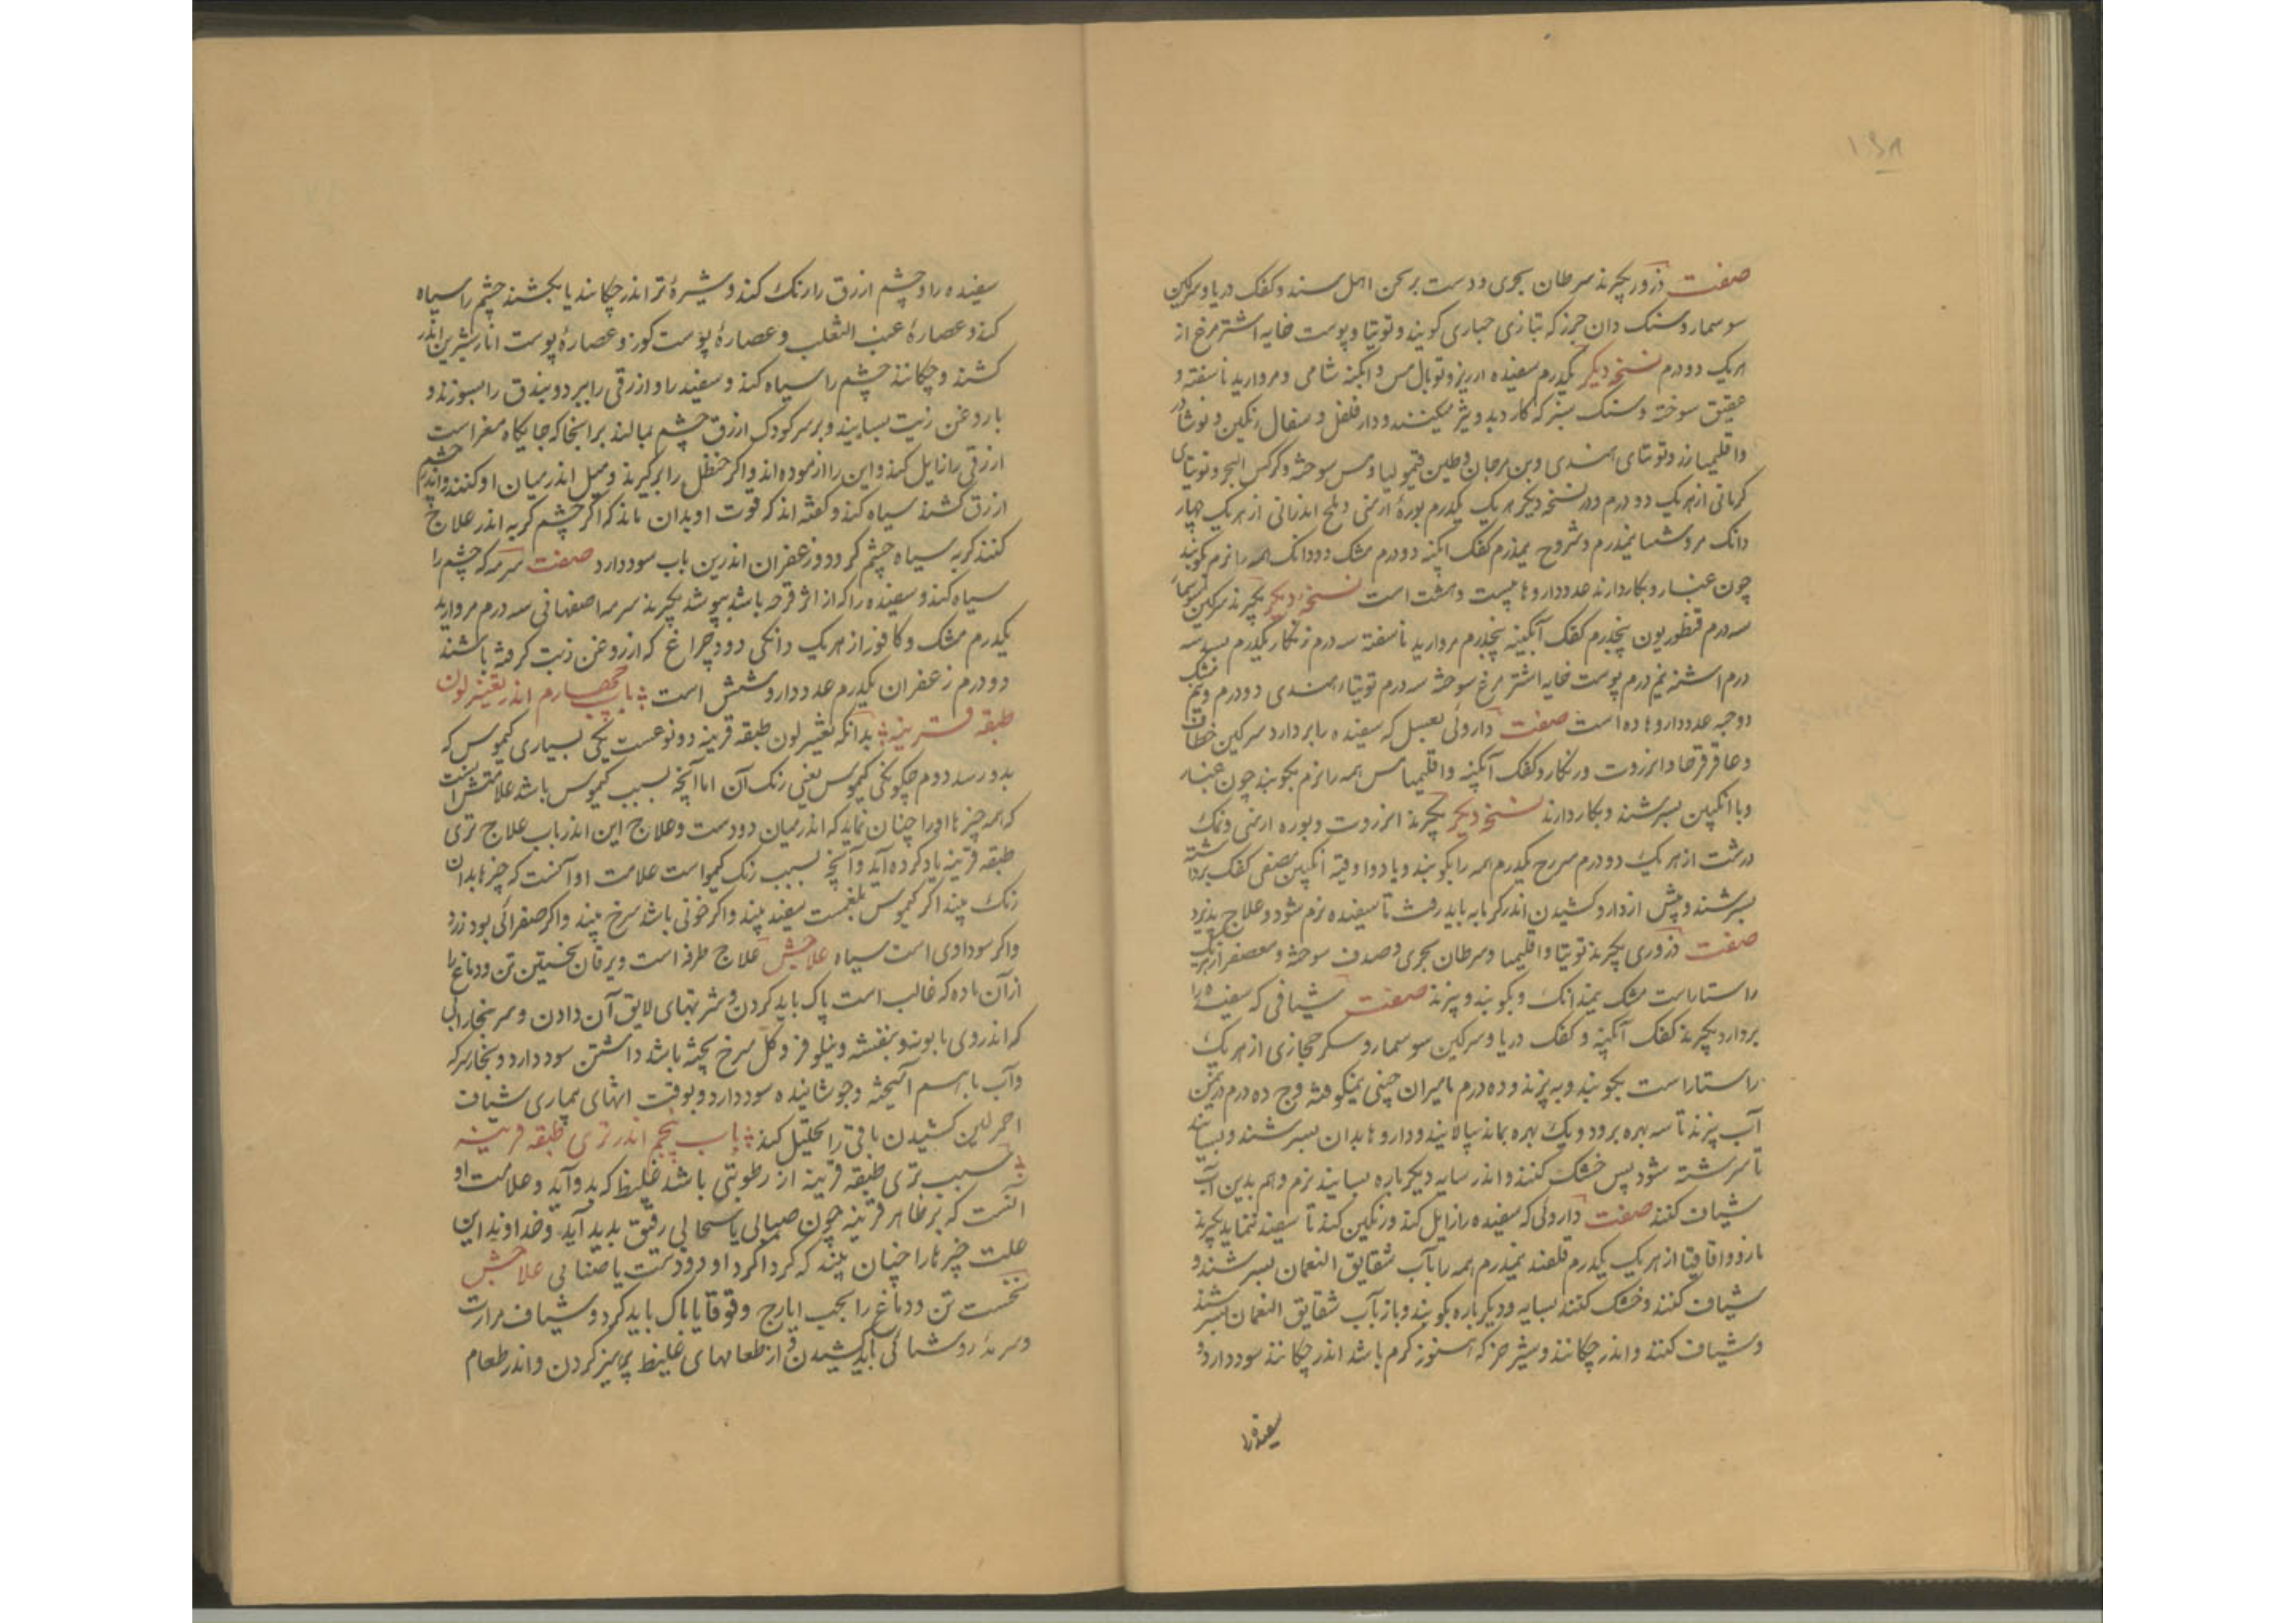 صفت ذرور بگیرند سرطان بحری و دست برنجن اهل سند و کفک دریا و سرکین
سوسمار و سنک دان حرز که بتازی حباری کویند و توتیا و پوست خایه اشترمرغ از
هریک دو درم نسخه دیکر یکدرم سفیده ارزیز و توبال مس و ابکینه شامی و مروارید ناسفته و
عقیق سوخته و سنک سبز که کارد بدو تیز میکنند و دارفلفل و سفال رنکین و نوشادر
و اقلیمیا زر و توتیای هندی و بن مرجان و طین قیمولیا و مس سوخته و کرکس البحر و توتیای
کرمانی از هریک دو درم و در نسخه دیکر هریک یکدرم بوره ارمنی و ملح اندرانی از هریک چهار
دانک مروشنا نیمدرم و شروح نیمدرم کفک ابکینه دو درم مشک دو دانک همه را نرم بکوبند
چون غبار و بکار دارند عدد داروها بیست و هشت است نسخه دیکر بگیرند سرکین سوسمار
سه درم قنطوریون پنجدرم کفک آبکینه پنجدرم مروارید ناسفته سه درم زنکار یکدرم بسد سه
درم اشنه نیم درم پوست خایه اشترمرغ سوخته سه درم توتیاء هندی دو درم و نیم مشک
دو حبه عدد داروها ده است صفت داروئی بعسل که سفیده را بردارد سرکین خطاف
و عاقرقرحا و انزروت و زنکار و کفک آبکینه و اقلیمیا مس همه را نرم بکوبند چون غبار
و با انکبین بسرشند و بکار دارند نسخه دیکر بگیرند انزروت و بوره ارمنی و نمک
درشت از هریک دو درم سرح یکدرم همه را بکوبند و با دو اوقیه انکبین مصفی کفک برداشته
بسرشند و پیش از دارو کشیدن اندر کرمابه باید رفت تا سفیده نرم شود و علاج پذیرد
صفت ذروری بگیرند توتیا و اقلیمیا و سرطان بحری و صدف سوخته و معصفر از هریک
راستاراست مشک نیمدانک و بکوبند و ببزند صفت شیافی که سفیده را
بردارد بگیرند کفک آبکینه و کفک دریا و سرکین سوسمار و سکر حجازی از هریک
راستاراست بکوبند و به بیزند و ده درم مامیران چینی نیمکوفته و ج ده درم در یکمن
آب بپزند تا سه بهره برود و یک بهره بماند بپالایند و داروها بدان بسرشند و بسایند
تا سرشته شود پس خشک کنند و اندر سایه دیکرباره بسایند نرم و هم بدین آب
شیاف کنند صفت داروئی که سفیده را زایل کند و رنکین کند تا سفید ننماید بگیرند
مازو و اقاقیا از هریک یکدرم قلقند نیمدرم همه را بآب شقایق النعمان بسرشند و
شیاف کنند و خشک کنند بسایه و دیکرباره بکوبند و باز بآب شقایق النعمان بسرشند
و شیاف کنند و اندر چکانند و شیر خر که هنوز کرم باشد اندر چکانند سود دارد و
سفیده را
سفیده را و چشم ازرق را رنک کند و شیرهٔ تر اندر چکانند یا بکشند چشم را سیاه
کند و عصارهٔ عنب الثعلب و عصارهٔ پوست کوز و عصارهٔ پوست انار شیرین اندر
کشند و چکانند چشم را سیاه کند و سفید را و ازرقی را ببرد و بندق را بسوزند و
با روغن زیت بسایند و بر سر کودک ازرق چشم بمالند بر انجا که جایکاه مغز است
ازرقی را زایل کند و این را ازموده اند و اکر حنظل را برکیرند و میل اندر میان او کنند و اندر چشم
ازرق کشند سیاه کند و کفته اند که قوت او بدان ماند که اکر چشم کربه اندر علاج
کنند کربه سیاه چشم کردد و زعفران اندرین باب سود دارد صفت سرمه که چشم را
سیاه کند و سفیده را که از اثر قرحه باشد بپوشد بگیرند سرمه اصفهانی سه درم مروارید
یکدرم مشک و کافور از هریک دانکی دود چراغ که از روغن زیت کرفته باشند
دو درم زعفران یکدرم عدد دارو شش است باب چهارم اندر تغییر لون
طبقه قرنیه بدانکه تغییر لون طبقه قرنیه دو نوعست یکی بسیاری کیموس که
بدو رسد دوم چکونکی کیموس یعنی رنک آن اما آنچه بسبب کیموس باشد علامتش آنست
که همه چیزها او را چنان نماید که اندر میان دودست و علاج این اندر باب علاج تری
طبقه قرنیه یاد کرده آید و آنچه بسبب رنک کیموس است علامت او آنست که چیزها بدان
رنک بیند اکر کیموس بلغمیست سفید بیند و اکر خونی باشد سرخ بیند و اکر صفرائی بود زرد
و اکر سوداوی است سیاه علاجش علاج طرفه است و یرقان نخستین تن و دماغ را
از آن ماده که غالب است پاک باید کردن و شربتهای لایق آن دادن و سر ببخار آبی
که اندر وی بابونه و بنفشه و نیلوفر و کل سرخ پخته باشد داشتن سود دارد و بخار سرکه
و آب باهم آمیخته و جوشانیده سود دارد و بوقت انتهای بیماری شیاف
احمر لین کشیدن باقی را تحلیل کند باب پنجم اندر تری طبقه قرنیه
سبب تری طبقه قرنیه از رطوبتی باشد غلیظ که بدو آید و علامت او
آنست که بر ظاهر قرنیه چون ضبابی یا سحابی رقیق پدید آید و خداوند این
علت چیزها را چنان بیند که کرداکرد او دودست یا ضبابی علاجش
نخست تن و دماغ را بحب ایارج و قوقایا پاک باید کرد و شیاف مرارت
و سرمهٔ روشنائی باید کشیدن و از طعامهای غلیظ پرهیز کردن و اندر طعام